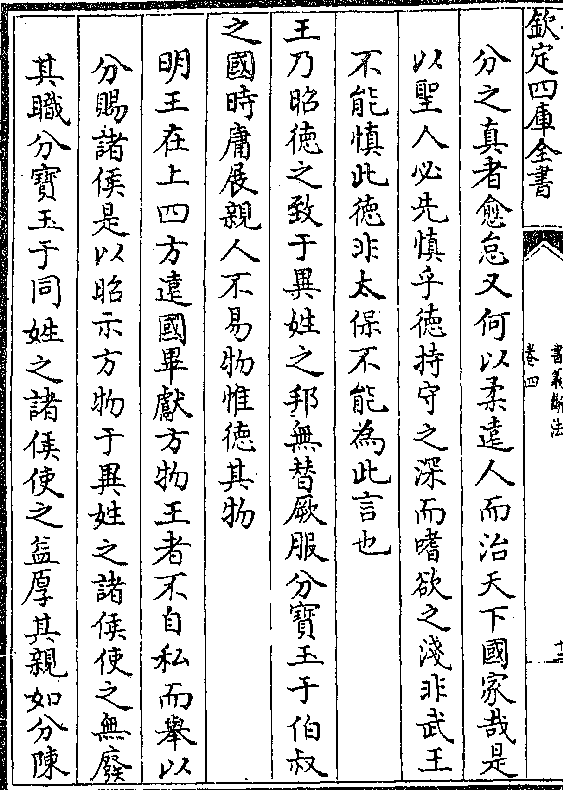 欽定四庫全書
書義斷法
卷四
分之真者愈怠又何以柔遠人而治天下國家哉是
以聖人必先慎乎德持守之深而嗜欲之淺非武王
不能慎此德非太保不能為此言也
王乃昭德之致于異姓之邦無替厥服分寶玉于伯叔
之國時庸展親人不易物惟德其物
明王在上四方遠國畢獻方物王者不自私而舉以
分賜諸侯是以昭示方物于異姓之諸侯使之無廢
其職分寶玉于同姓之諸侯使之益厚其親如分陳